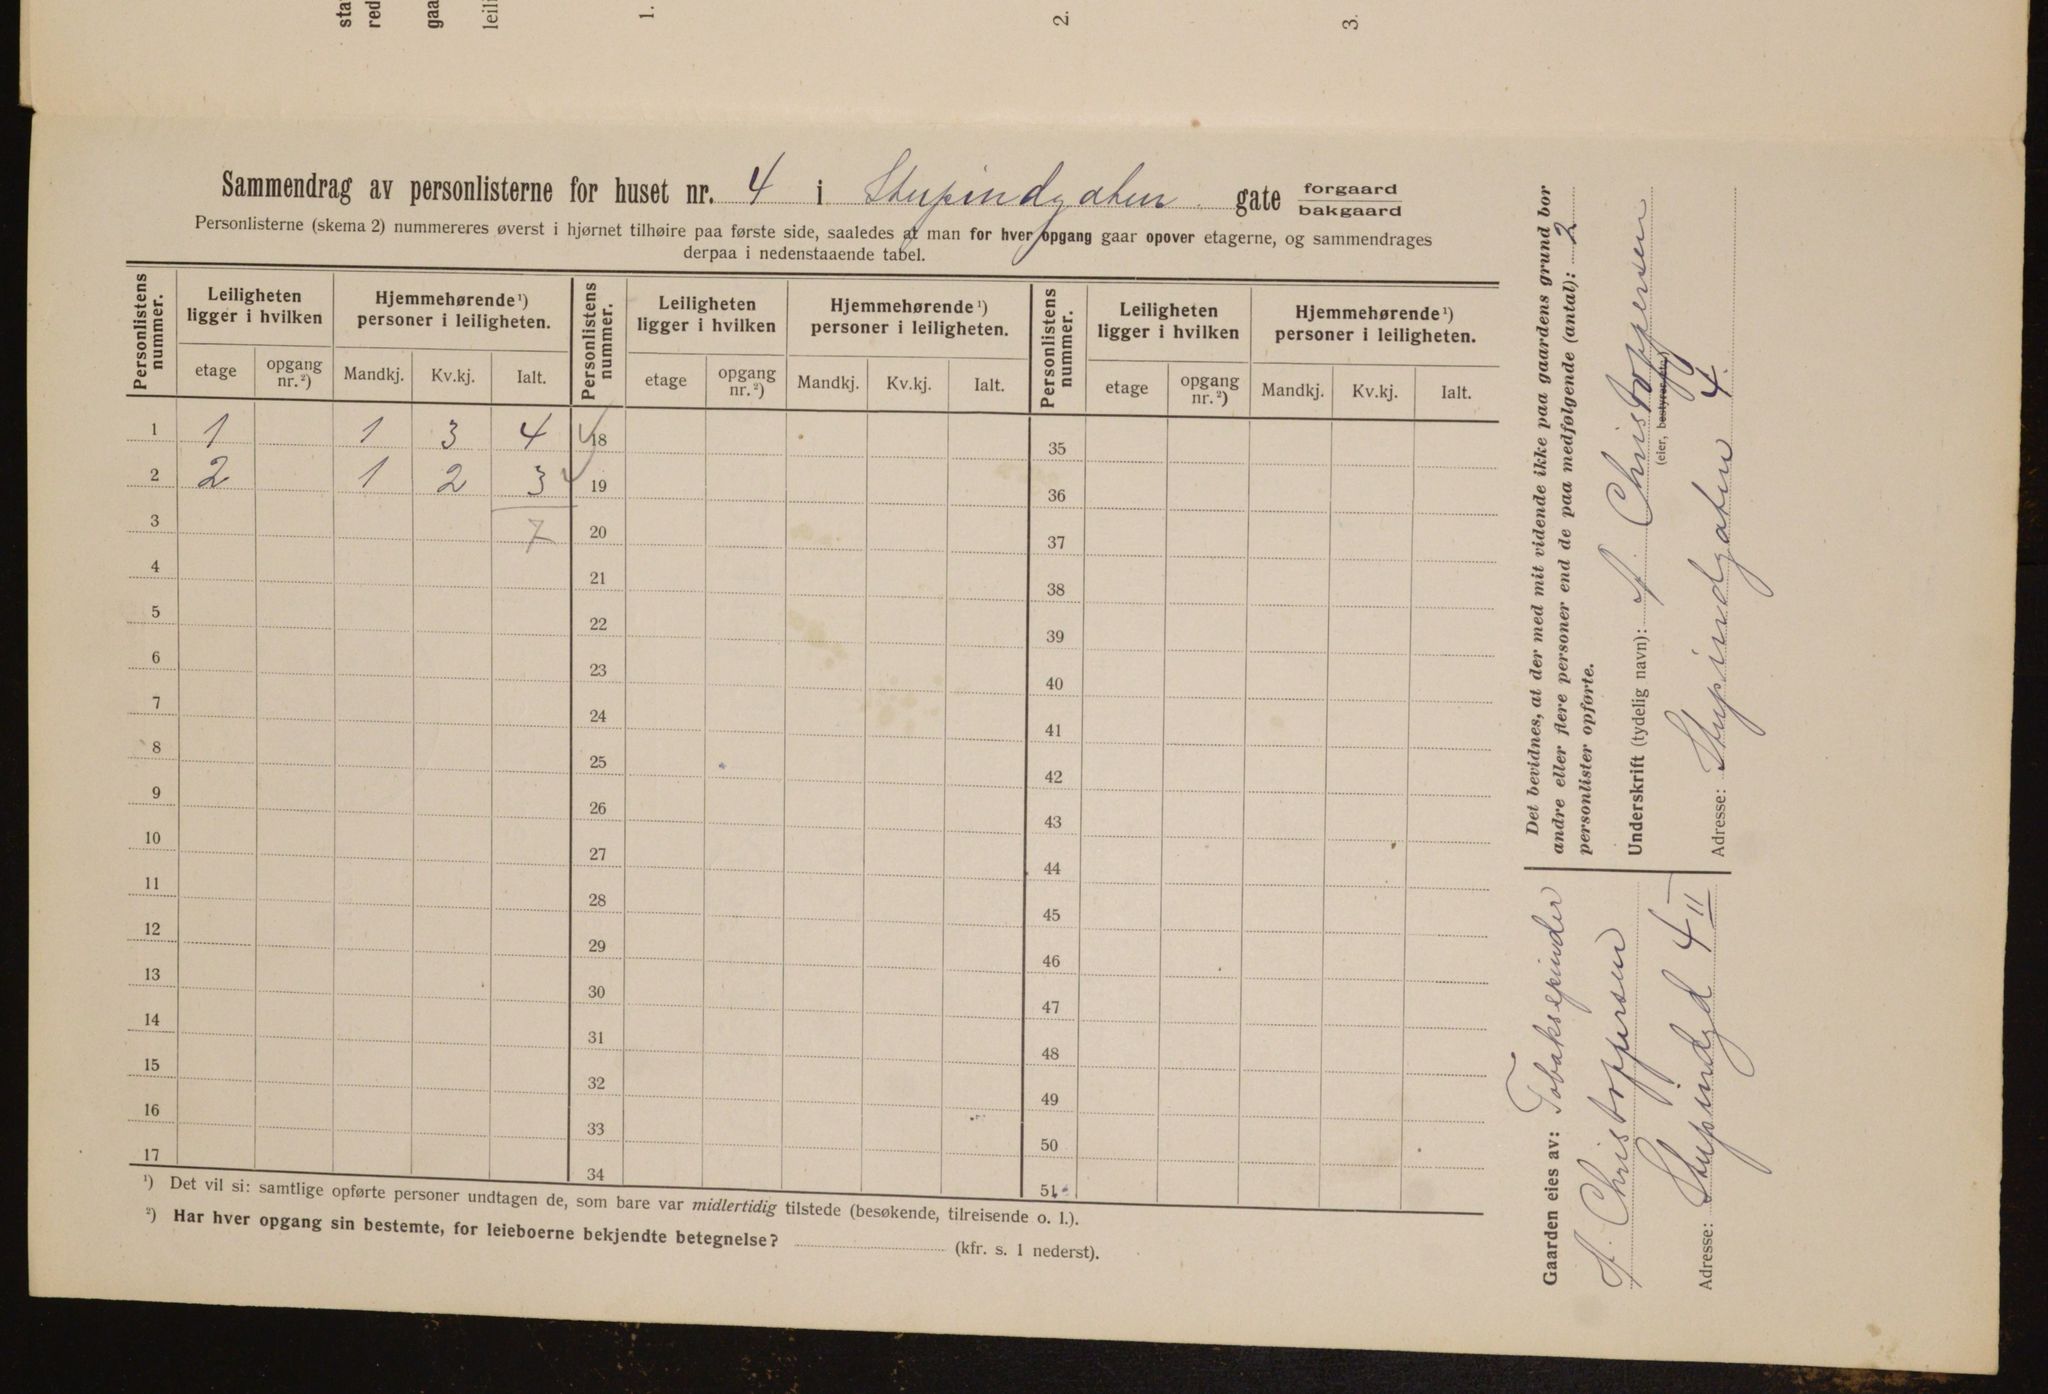 sta
red
gaa
leili
1.
2.
3.
Sammendrag av personlisterne for huset nr. 4 i Stupindgaten gate forgaard
bakgaard
Personlisterne (skema 2) nummereres øverst i hjørnet tilhøire paa første side, saaledes at man for hver opgang gaar opover etagerne, og sammendrages
derpaa i nedenstaaende tabel.
Personlistens nummer. Leiligheten ligger i hvilken Hjemmehørende ¹) personer i leiligheten. Personlistens nummer. Leiligheten ligger i hvilken Hjemmehørende ¹) personer i leiligheten. Personlistens nummer. Leiligheten ligger i hvilken Hjemmehørende ¹) personer i leiligheten.
etage opgang nr. ²) Mandkj. Kv.kj. Ialt. etage opgang nr. ²) Mandkj. Kv.kj. Ialt. etage opgang nr. ²) Mandkj. Kv.kj. Ialt.
1 1 1 3 4 18 35
2 2 1 2 3 19 36
3 7 20 37
4 21 38
5 22 39
6 23 40
7 24 41
8 25 42
9 26 43
10 27 44
11 28 45
12 29 46
13 30 47
14 31 48
15 32 49
16 33 50
17 34 51
¹) Det vil si: samtlige opførte personer undtagen de, som bare var midlertidig tilstede (besøkende, tilreisende o. l.).
²) Har hver opgang sin bestemte, for leieboerne bekjendte betegnelse? (kfr. s. 1 nederst).
Det bevidnes, at der med mit vidende ikke paa gaardens grund bor
andre eller flere personer end de paa medfølgende (antal): 2
personlister opførte.
Underskrift (tydelig navn): A. Christoppersen
(eier, bestyrer etc.)
Adresse: Stupindgaten 4.
Gaarden eies av: Tobaksspinder
A. Christoppersen
Adresse: Stupindgd 4 II